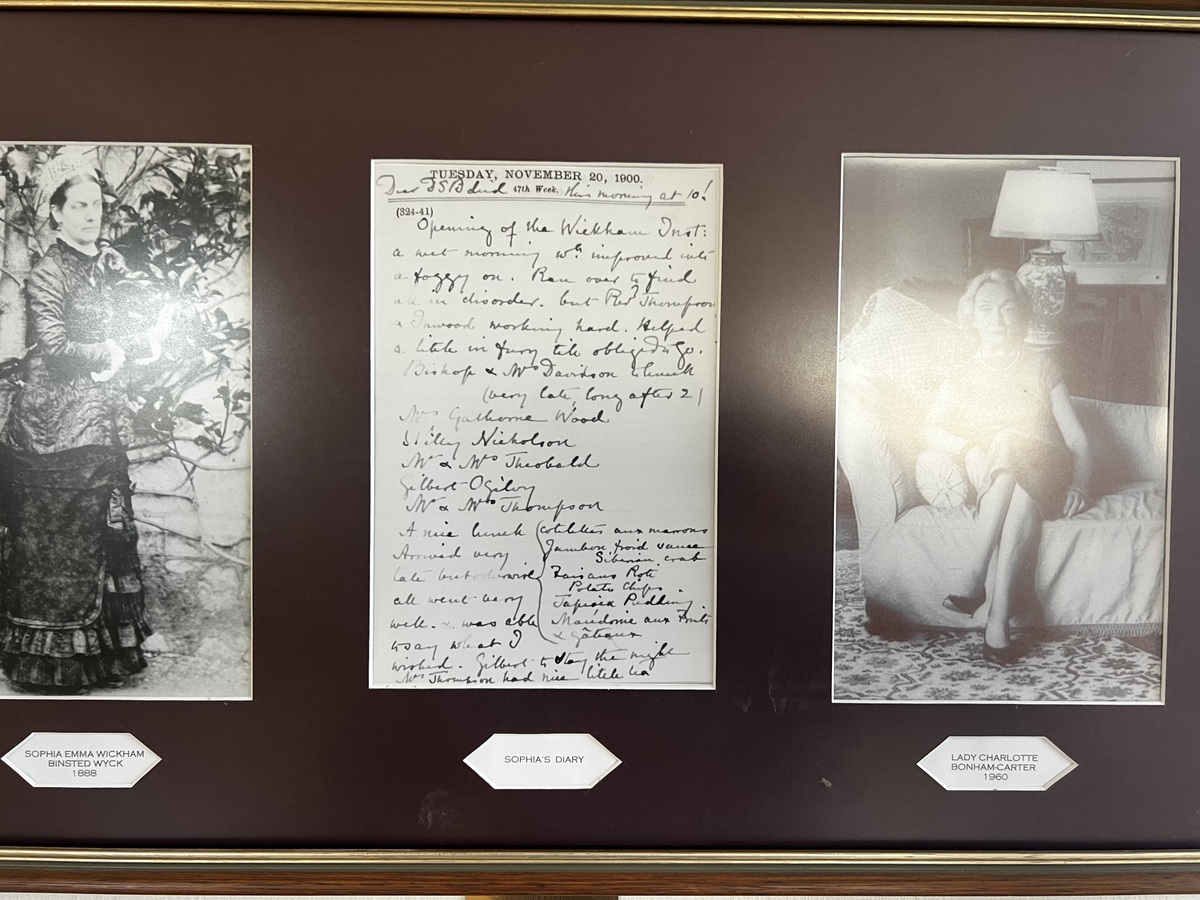 TUESDAY, NOVEMBER 20, 1900.
Dear died 47th Week. this morning at 10!
(324-41)
Opening of the Wickham Inst:
a wet morning wh improved into
a foggy on. Ran over to find
all in disorder. but Revd Thompson
& Inwood working hard. Helped
a little in fury till obliged to go.
Bishop & Mrs Davidson to lunch
(very late, long after 2)
Mrs Gathorne Wood
Nicholson
Mr & Mrs Theobald
Gilbert Ogilvy
Mr & Mrs Thompson
A nice lunch
Arrived very
late but otherwise
all went very
well. & was able
to say what I
wished. Gilbert to stay the night
Mrs Thompson had nice little tea
cotelettes aux marons
Jambon froid sauce
Siberian crab
Faisans Roti
Potato Chips.
Tapioca Pudding.
Macédoine aux Fruits
& gâteaux
SOPHIA EMMA WICKHAM
BINSTED WYCK
1888
SOPHIA'S DIARY
LADY CHARLOTTE
BONHAM-CARTER
1960